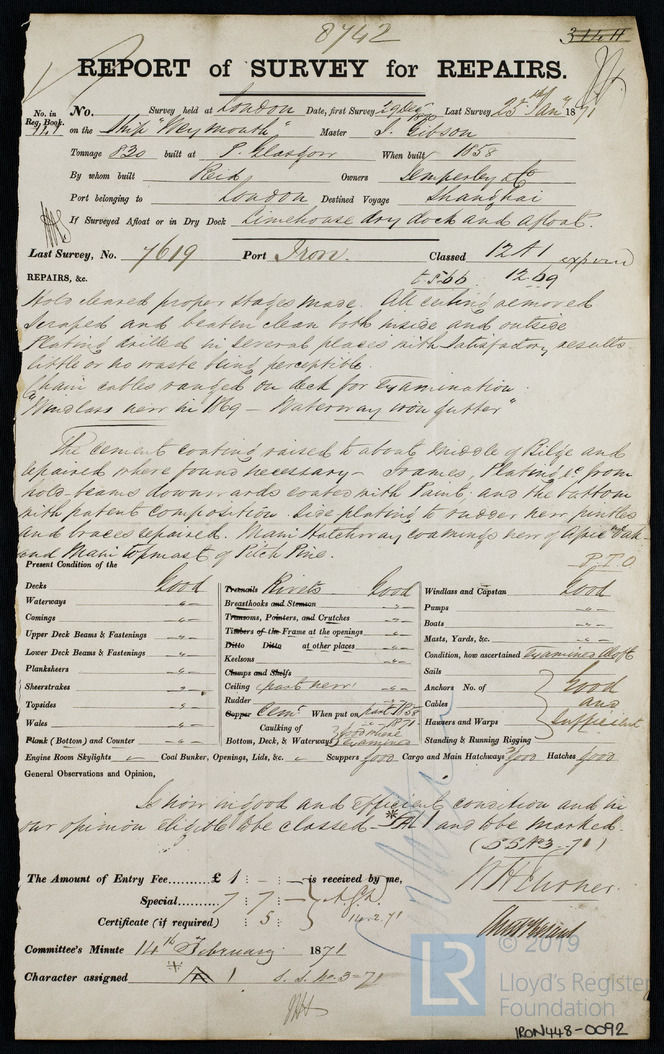 8742
3144
REPORT of SURVEY for REPAIRS.
No. in Reg. Book.
No. Survey held at London Date, first Survey 29 Dec 1870 Last Survey 25th Jany 1871
on the Ship "Weymouth" Master J. Gibson
Tonnage 830 built at P. Glasgow When built 1858
By whom built Reid Owners Temperley & Co
Port belonging to London Destined Voyage Shanghai
If Surveyed Afloat or in Dry Dock Limehouse dry dock and afloat.
Last Survey, No. 7619 Port Iron. Classed 12 A 1 expired
REPAIRS, &c. t.s-66 12-69
Hold cleared proper stages made. All ceiling removed
scraped and beaten clean both inside and outside
Plating drilled in several places with satisfactory results
little or no waste being perceptible.
Chain cables ranged on deck for examination.
"Windlass new in 1869 – Waterway iron gutter"
The cement coating raised to about middle of Bilge and
repaired where found necessary – Frames, Plating &c from
hold-beams downwards coated with Paint, and the bottom
with patent composition. Side plating to rudder new pintles
and braces repaired. Main Hatchway coamings new of Afric Oak
and Main topmast of Pitch Pine.
P.T.O
Present Condition of the
Decks Good
Waterways "
Comings "
Upper Deck Beams & Fastenings "
Lower Deck Beams & Fastenings "
Planksheers "
Sheerstrakes "
Topsides "
Wales "
Plank (Bottom) and Counter "
Treenails Rivets Good
Breasthooks and Stemson "
Transoms, Pointers, and Crutches "
Timbers of the Frame at the openings "
Ditto Ditto at other places "
Keelsons "
Clamps and Shelfs
Ceiling part new "
Rudder "
Copper Cemt When put on part 1858
" 1871
Caulking of Bottom, Deck, & Waterways good where examined
Windlass and Capstan Good
Pumps "
Boats "
Masts, Yards, &c. "
Condition, how ascertained Examined Aloft
Sails
Anchors No. of
Cables
Hawsers and Warps
Standing & Running Rigging
Good and Sufficient
Engine Room Skylights " Coal Bunker, Openings, Lids, &c. " Scuppers good Cargo and Main Hatchways good Hatches good
General Observations and Opinion,
Is now in good and efficient condition and in
our opinion eligible to be classed A 1 and to be marked
(S.S. No 3-71)
The Amount of Entry Fee......... £ 1 : - : - is received by me,
Special......... 7 : 7 : -
Certificate (if required) : 5 :
14.2.71
Committee's Minute 14th February 1871
Character assigned A 1 S.S. No. 3-71
LR
© 2019
Lloyd's Register
Foundation
IRON448-0092